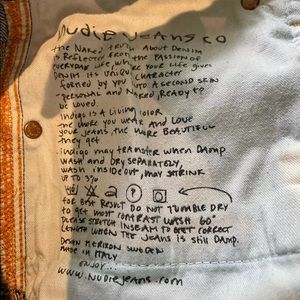 Nudie Jeans co
the Naked truth About DENIM
is Reflected from the PASSION OF
EVERYDAY LIFE where your LIFE gives
DENIM its unique character
formed by you into A second skin
- personal and Naked, Ready to
be loved.
Indigo is A Living color
the more you wear and Love
your jeans, the more Beautiful
they get.
.indigo may transfer when DAMP.
wash and dry separately,
wash inside out, may shrink
up to 3%
for best result DO NOT TUMBLE DRY
to get most contrast wash 60°
please stretch inseam to get correct
length when the jeans is still Damp.
Design Herizon SWEDEN
MADE IN ITALY
ENJOY...
www.NudieJeans.com